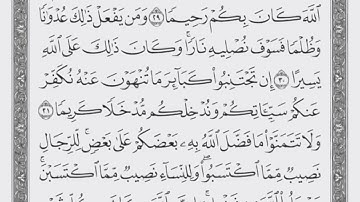 ٱللَّهَ كَانَ بِكُمْ رَحِيمًا ٢٩ وَمَن يَفْعَلْ ذَٰلِكَ عُدْوَٰنًا
وَظُلْمًا فَسَوْفَ نُصْلِيهِ نَارًا ۚ وَكَانَ ذَٰلِكَ عَلَى ٱللَّهِ
يَسِيرًا ٣٠ إِن تَجْتَنِبُوا۟ كَبَآئِرَ مَا تُنْهَوْنَ عَنْهُ نُكَفِّرْ
عَنكُمْ سَيِّـَٔاتِكُمْ وَنُدْخِلْكُم مُّدْخَلًا كَرِيمًا ٣١
وَلَا تَتَمَنَّوْا۟ مَا فَضَّلَ ٱللَّهُ بِهِۦ بَعْضَكُمْ عَلَىٰ بَعْضٍ ۚ لِّلرِّجَالِ
نَصِيبٌ مِّمَّا ٱكْتَسَبُوا۟ ۖ وَلِلنِّسَآءِ نَصِيبٌ مِّمَّا ٱكْتَسَبْنَ ۚ